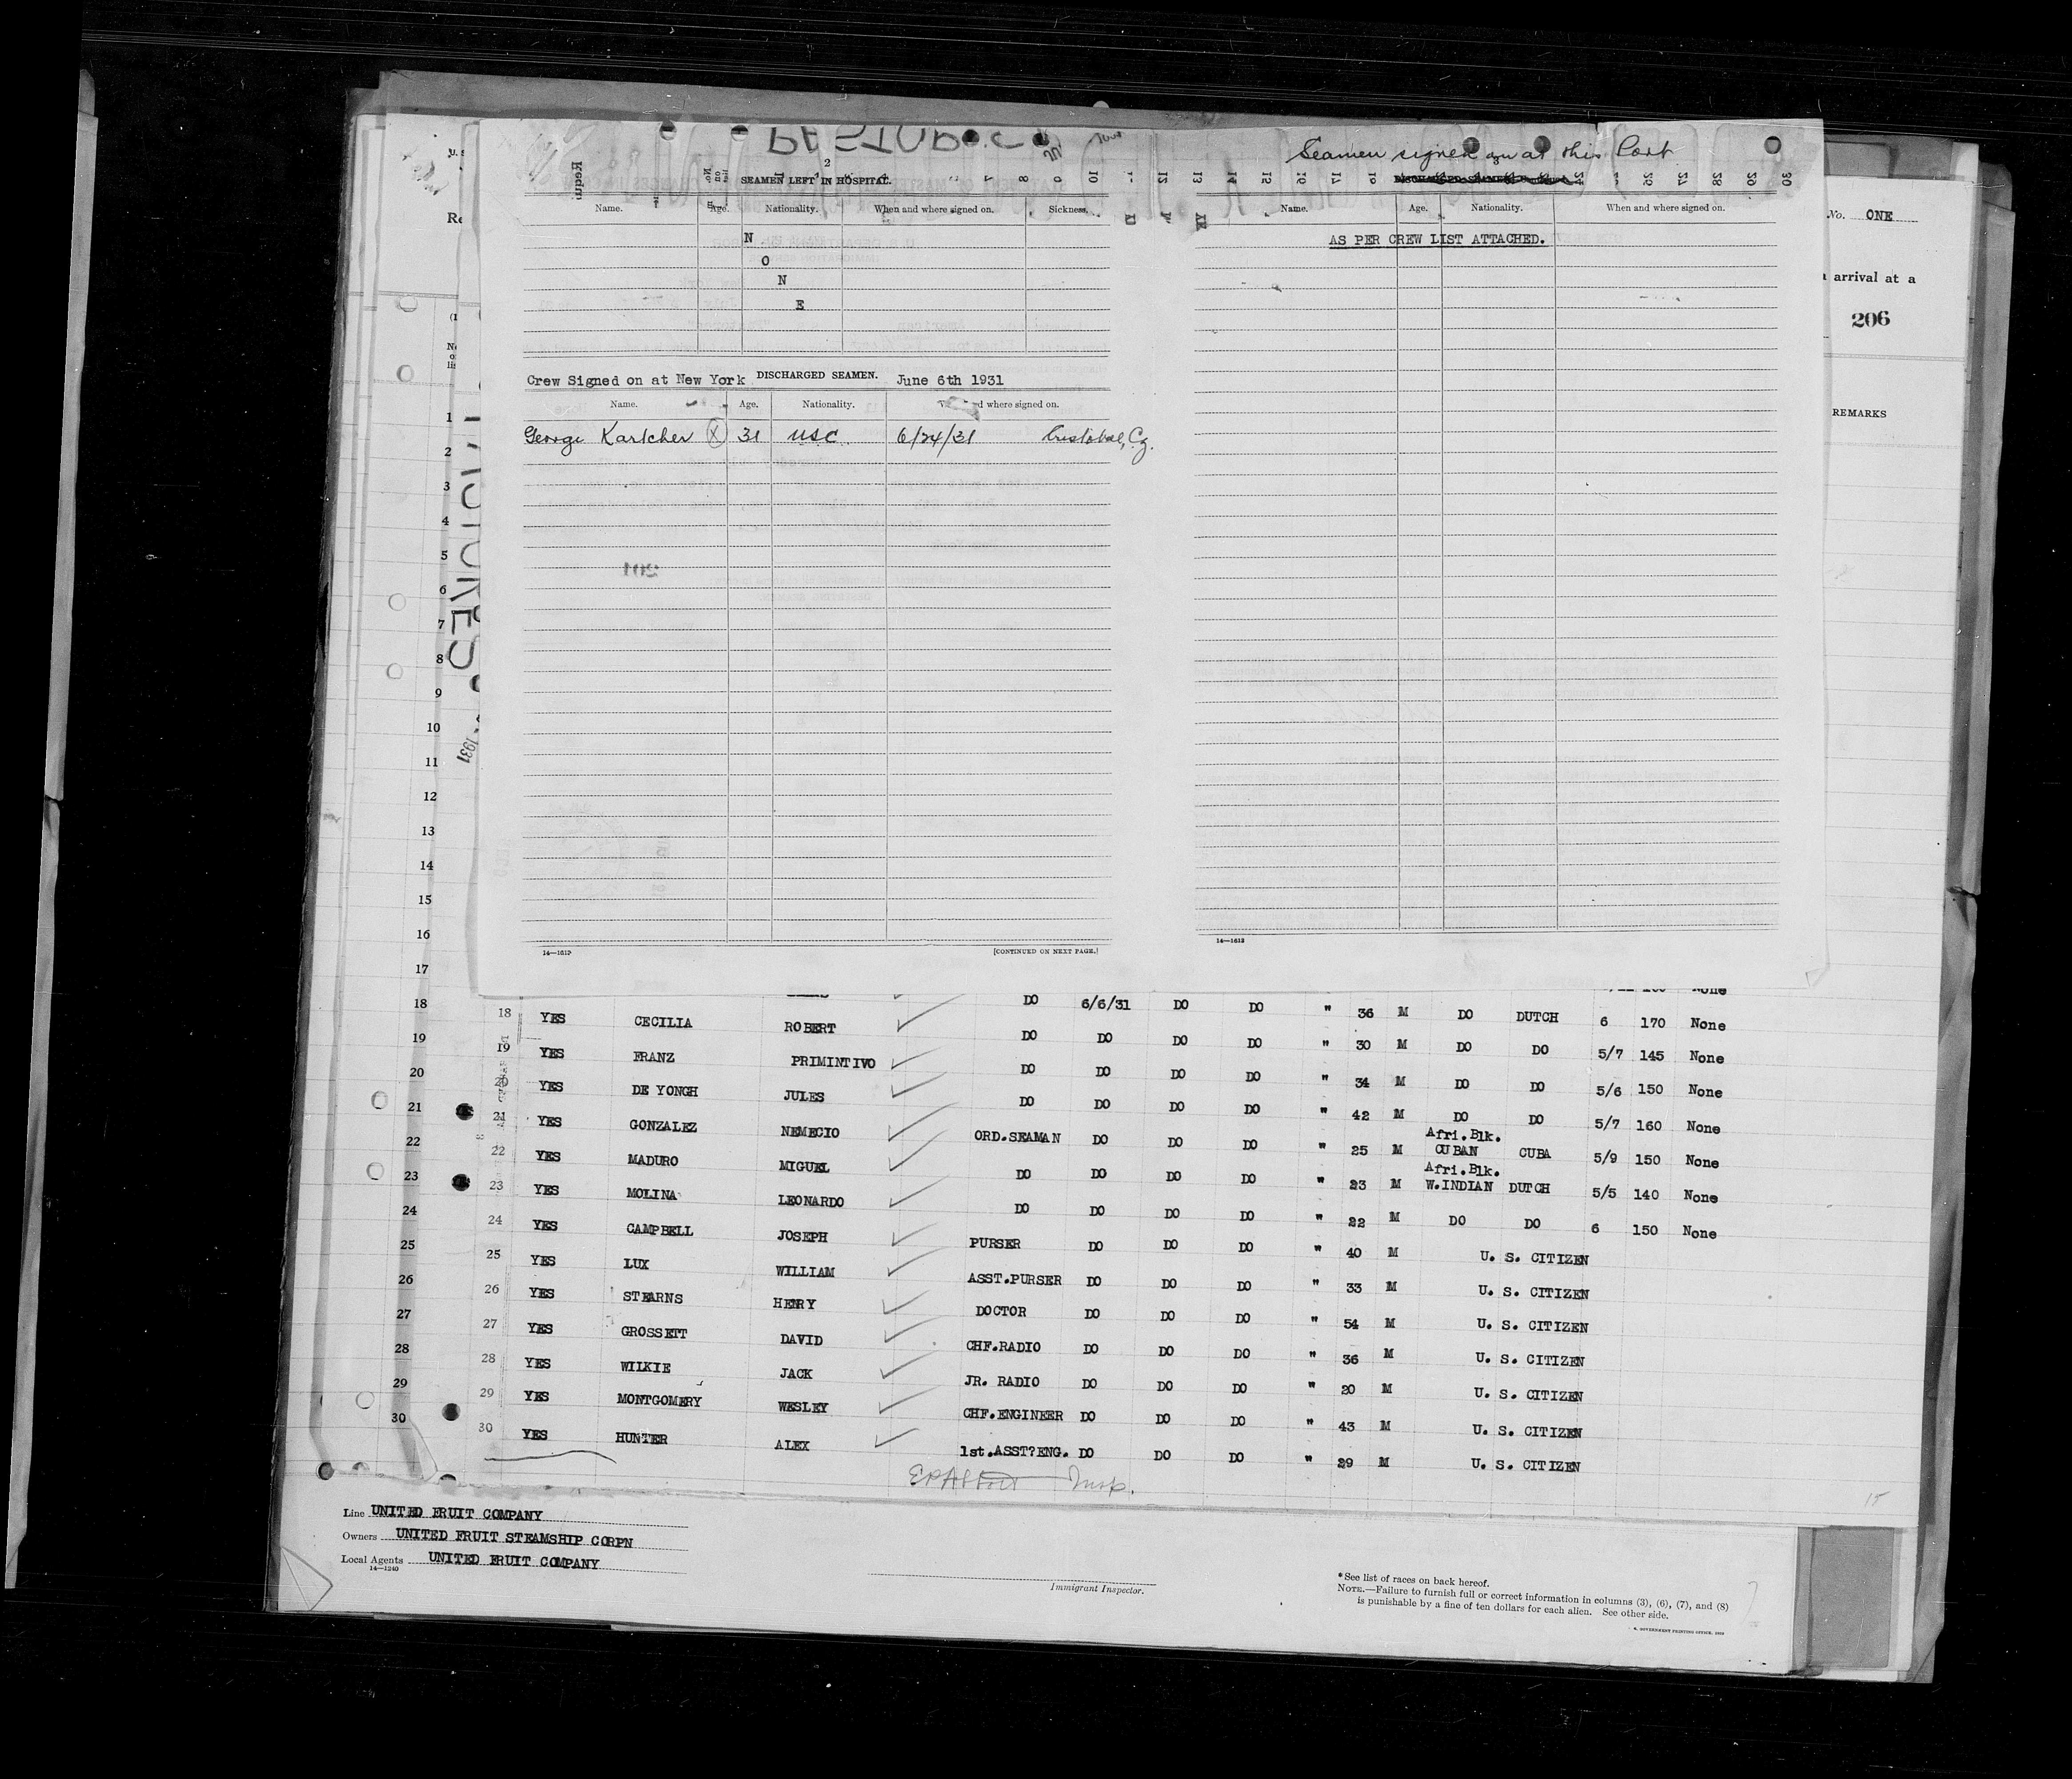 Seamen signed on at this Port
2
SEAMEN LEFT IN HOSPITAL.
Name. Age. Nationality. When and where signed on. Sickness.
N
O
N
E
Crew Signed on at New York DISCHARGED SEAMEN. June 6th 1931
Name. Age. Nationality. where signed on.
George Kartcher X 31 USC 6/24/31 Cristobal, Cz.
14—1613 [CONTINUED ON NEXT PAGE.]
Name. Age. Nationality. When and where signed on.
AS PER CREW LIST ATTACHED.
14—1613
No. ONE
arrival at a
206
REMARKS
1
2
3
4
5
6
7
8
9
10
11
12
13
14
15
16
17
18
19
20
21
22
23
24
25
26
27
28
29
30
1931
DO 6/6/31 DO DO " 36 M DO DUTCH 6 170 None
18 YES CECILIA ROBERT DO DO DO DO " 30 M DO DO 5/7 145 None
19 YES FRANZ PRIMINTIVO DO DO DO DO " 34 M DO DO 5/6 150 None
20 YES DE YONGH JULES DO DO DO DO " 42 M DO DO 5/7 160 None
21 YES GONZALEZ NEMECIO ORD.SEAMAN DO DO DO " 25 M Afri.Blk. CUBAN CUBA 5/9 150 None
22 YES MADURO MIGUEL DO DO DO DO " 23 M Afri.Blk. W.INDIAN DUTCH 5/5 140 None
23 YES MOLINA LEONARDO DO DO DO DO " 22 M DO DO 6 150 None
24 YES CAMPBELL JOSEPH PURSER DO DO DO " 40 M U. S. CITIZEN
25 YES LUX WILLIAM ASST.PURSER DO DO DO " 33 M U. S. CITIZEN
26 YES STEARNS HENRY DOCTOR DO DO DO " 54 M U. S. CITIZEN
27 YES GROSSETT DAVID CHF.RADIO DO DO DO " 36 M U. S. CITIZEN
28 YES WILKIE JACK JR. RADIO DO DO DO " 20 M U. S. CITIZEN
29 YES MONTGOMERY WESLEY CHF.ENGINEER DO DO DO " 43 M U. S. CITIZEN
30 YES HUNTER ALEX 1st.ASST?ENG. DO DO DO " 29 M U. S. CITIZEN
Insp.
15
Line UNITED FRUIT COMPANY
Owners UNITED FRUIT STEAMSHIP CORPN
Local Agents UNITED FRUIT COMPANY
14—1240
Immigrant Inspector.
*See list of races on back hereof.
NOTE.—Failure to furnish full or correct information in columns (3), (6), (7), and (8)
is punishable by a fine of ten dollars for each alien. See other side.